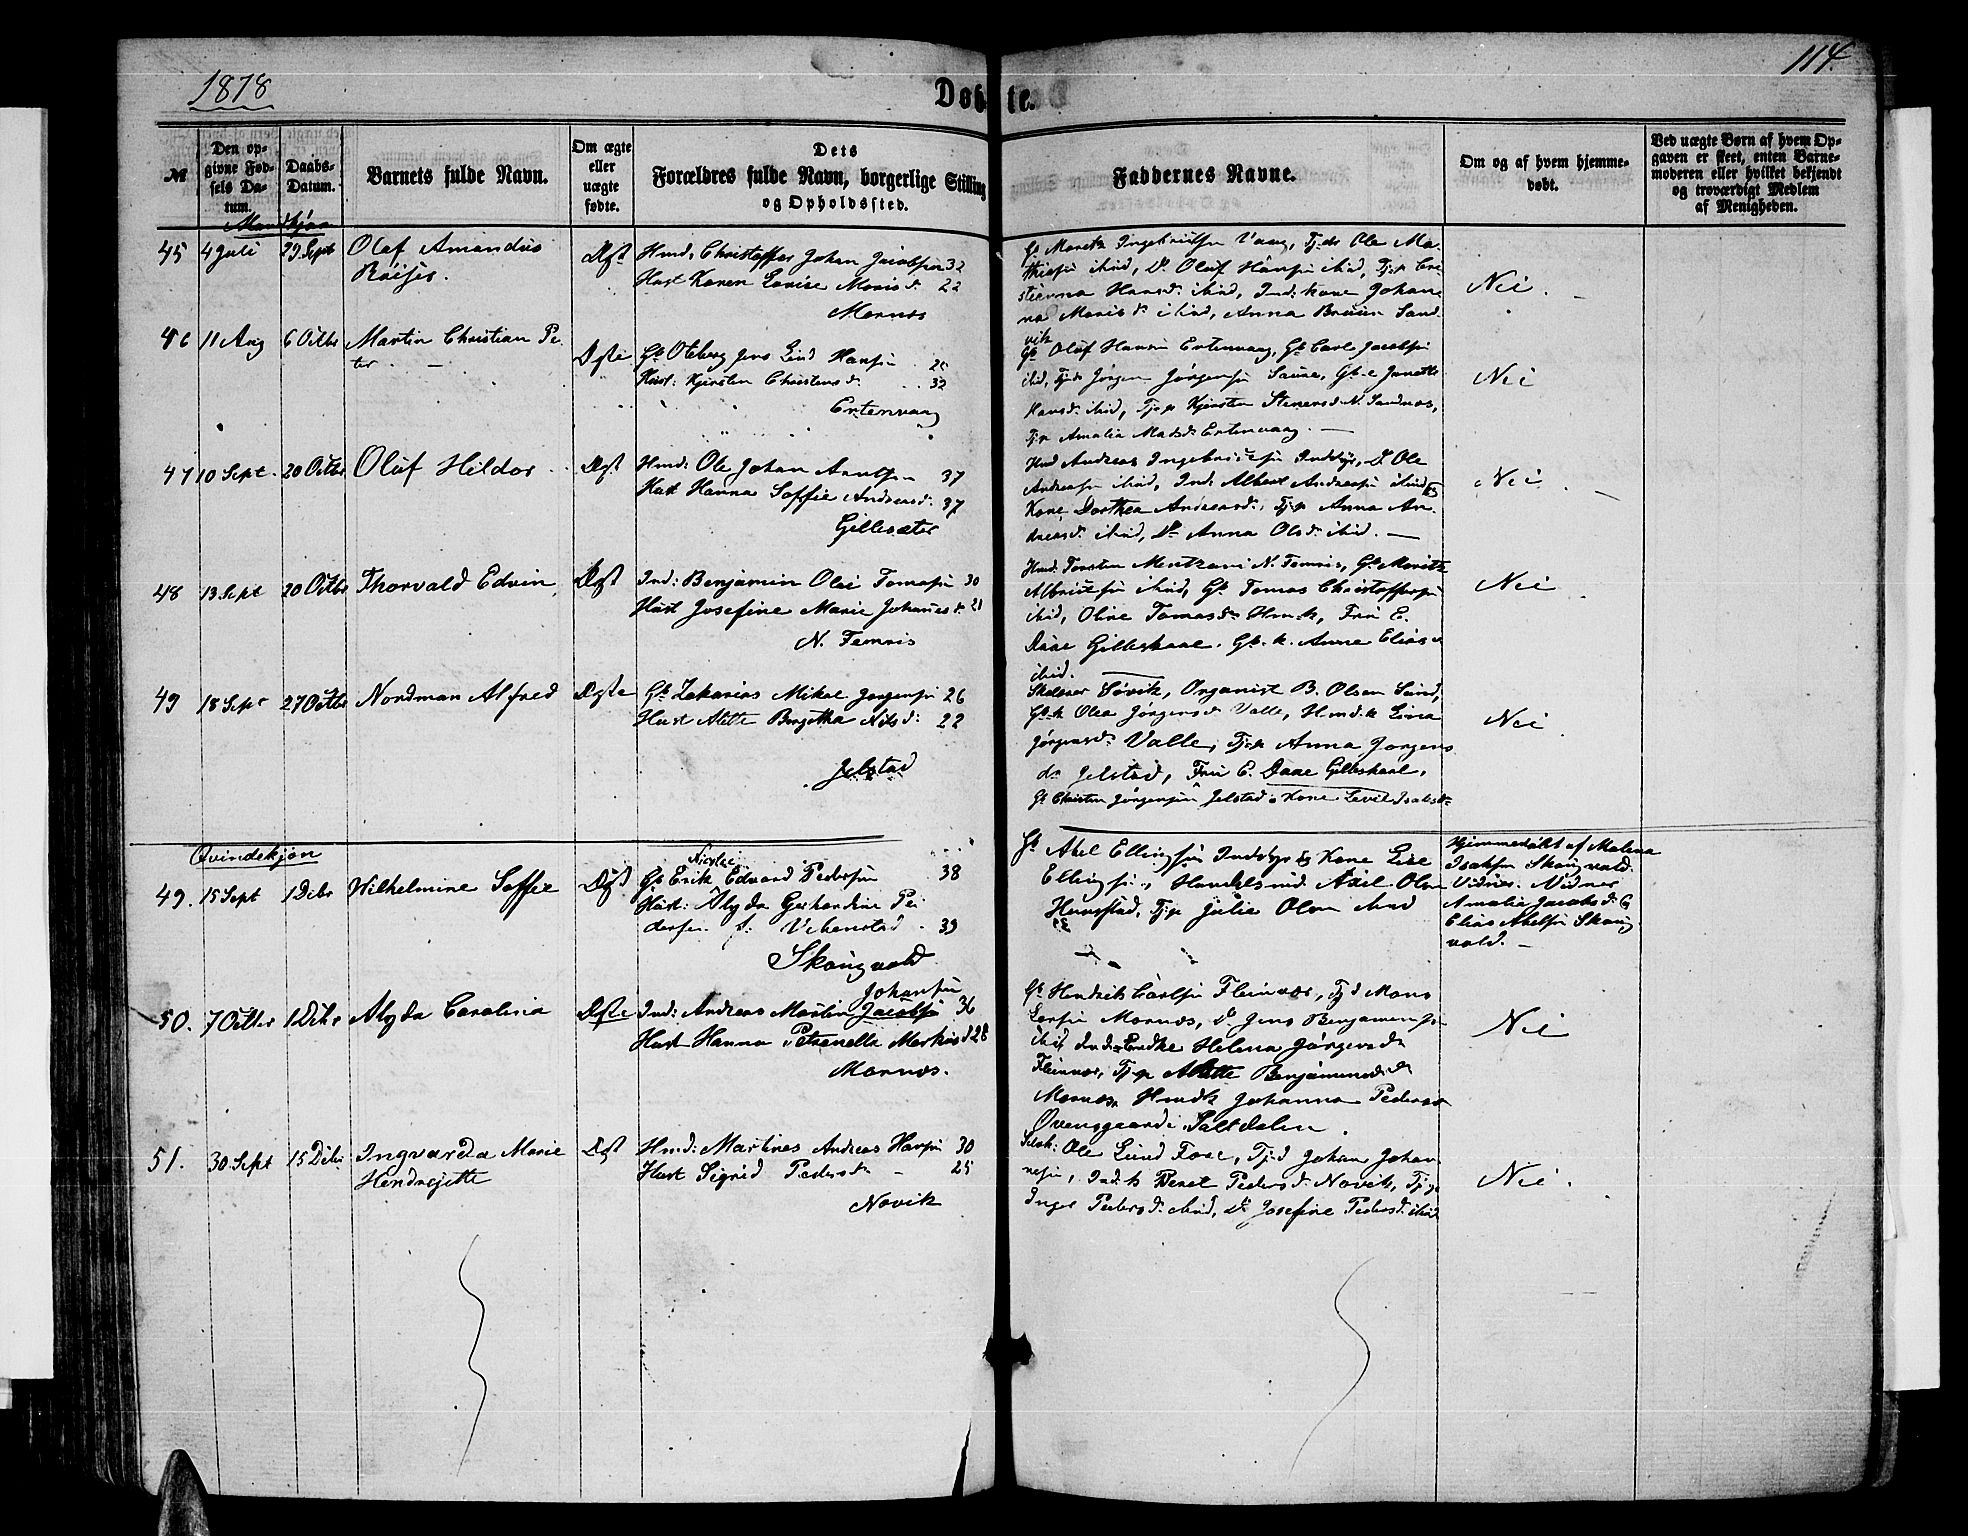 1878
114.
Døbte.
№
Den opgivne Fødsels Datum.
Daabs-Datum.
Barnets fulde Navn.
Om ægte eller uægte fødte.
Dets Forældres fulde Navn, borgerlige Stilling og Opholdssted.
Faddernes Navne.
Om og af hvem hjemmedøbt.
Ved uægte Børn af hvem Opgaven er skeet, enten Barnemoderen eller hvilket bekjendt og troværdigt Medlem af Menigheden.
Mandkjøn
45 4 Juli 29 Sept Olaf Amandus
Røijer.
Ægt Hmd, Christoffer Johan Jacobsen 32
Hust Karen Lovise Moris d. 22
Mornes
Gb Moretz Ingebrictsn Vaag, Tjd Ole Ma-
thiesn ibid, D. Oluf Hansn ibid, Tjp
Hansd. ibid, Ind: kone Johan-
na Moris d. ibid, Anna Bruun Sand-
vik
Nei.
46 11 Aug 6 Octbr Martin Christian Pe-
ter.
Ægte Gb Oteberg Jens Lind Hansn
Hust: Kjersten Christensd. 32
Ertenvaag
Gb Oluf Hansn Ertenvaag, Gb Carl Jacobsn
ibid, Tjd Jørgen Jørgensn Saura, Gb. e Janette
Hansd. ibid, Tjp Kjersten Stenersd. N. Sandnes,
Tjp Amalia Mads d. Ertenvaag.
Nei
47 10 Sept. 20 Octbr Oluf Hildor
Ægt Hmd: Ole Johan Arntsn 37
Hust Hanna Soffie Andreas d. 37
Gillesæter
Hmd Andreas Ingebrictsn Inddyr, D Ole
Andreasn ibid, Ind. Albert Andreasn ibid &
Kone Dorthea Andreasd., Tjp Anna An-
dreasd. ibid, D. Anna Olsd. ibid.
Nei
48 13 Sept 20 Octbr Thorvald Edvin
Ægt Ind: Benjamin Olai Tomasn 30
Hust Josefine Marie Johannesd. 21
N. Femris
Hmd. Torsten Mentzoni N. Femris, Gb Moritz
Albrictsn ibid, Gb. Tomas Christoffersn
ibid, Oline Tomasd. Hmk, Fru E.
Daae Gilleskaal. Gb. k. Anne Elias d
ibid.
Nei
49 18 Sept 27 Octbr Nordman Alfred
Ægte Gb Zakarias Mikal Jørgensn 26
Hust Alette Bergitha Nils d: 22
Jelstad
Skolelær Søvik, Organist B. Olsen Sund,
Gb.k Olea Jørgensd. Valle, Hmd.k Lina
Jørgensd. Valle, Tjp Anna Jørgens
d. Jelstad, Fru E. Daae Gilleskaal.
Gb Christen Jørgensn Jelstad o Kone
Nei
Qvindekjøn
49. 15 Sept 1 Debr Wilhelmine Soffie
Ægt
Nicolai
Gb Erik Edvard Pedersn 38
Hust: Alyda Gerhardine Pe-
dersen f. 39
Skaugvold
Gb Abel Ellingsn Inddyr & Kone Lise
Ellingsn, Handelsmd. Axel Olsn
Hunstad, Tjp Julie Olsn ibid
Hjemmedøbt af Malena
Isaksn Skougvold.
Vidner
Amalia Jacobsd. &
Elias Abelsn Skoug-
vold.
50. 7 Octbr 1 Debr Alyda Carolina
Ægte
Johansn
Ind: Andreas Martin Jacobsn 36
Hust Hanna Petrenella Markusd 28
Mornes.
Gb. Hendrik Carlsn Fleinvær, Tjd Mons
Larsn Mornes, D. Jens Benjaminsn
ibid, Helena Jørgensd.
Fleinvær, Tjp Alette Benjaminsd.
Mornes, Hmdk Johanna Pedersd.
Øvensgaard i Saltdalen.
Nei
51. 30 Sept 15 Debr Ingvarda Marie
Hendrejette
Ægt Hmd: Martines Andreas Hansn 30
Hust Sigrid Pedersd. 25
Novik
Selvh: Ole Lund Fore, Tjd Johan Johan-
nesn, Ind. k Beret Peders d. Novik, Tjp
Inger Peders d. ibid, D. Josefine Peders d. ibid
Nei.